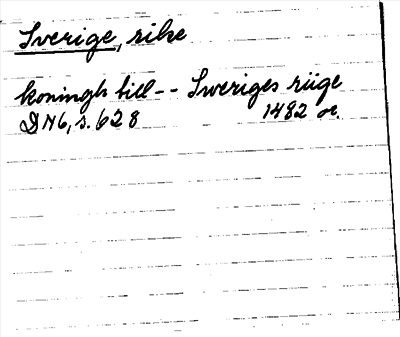 Sverige, rike
koningh till -- Sweriges riige
DN 6, s. 628 1482 or.